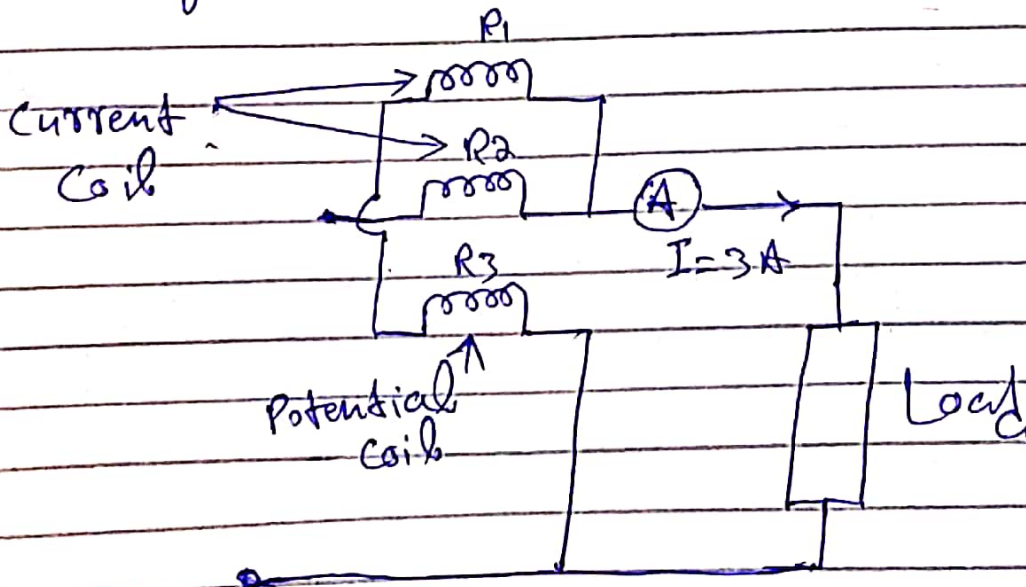 R1
Current
Coil
R2
A
I = 3 A
R3
Potential
coil
Load